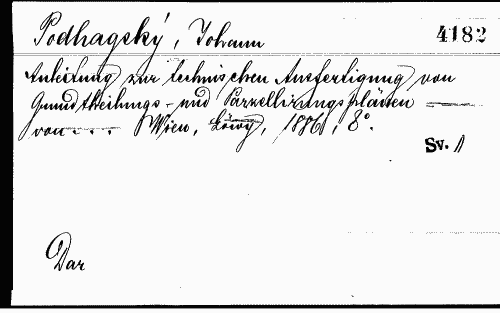 Podhagský, Johann 4182
Anleitung zur technischen Ausfertigung von
Grundtheilungs- und Parzellirungsplänen —
von ... Wien, Löwy, 1886, 8°.
Sv. 1
Dar